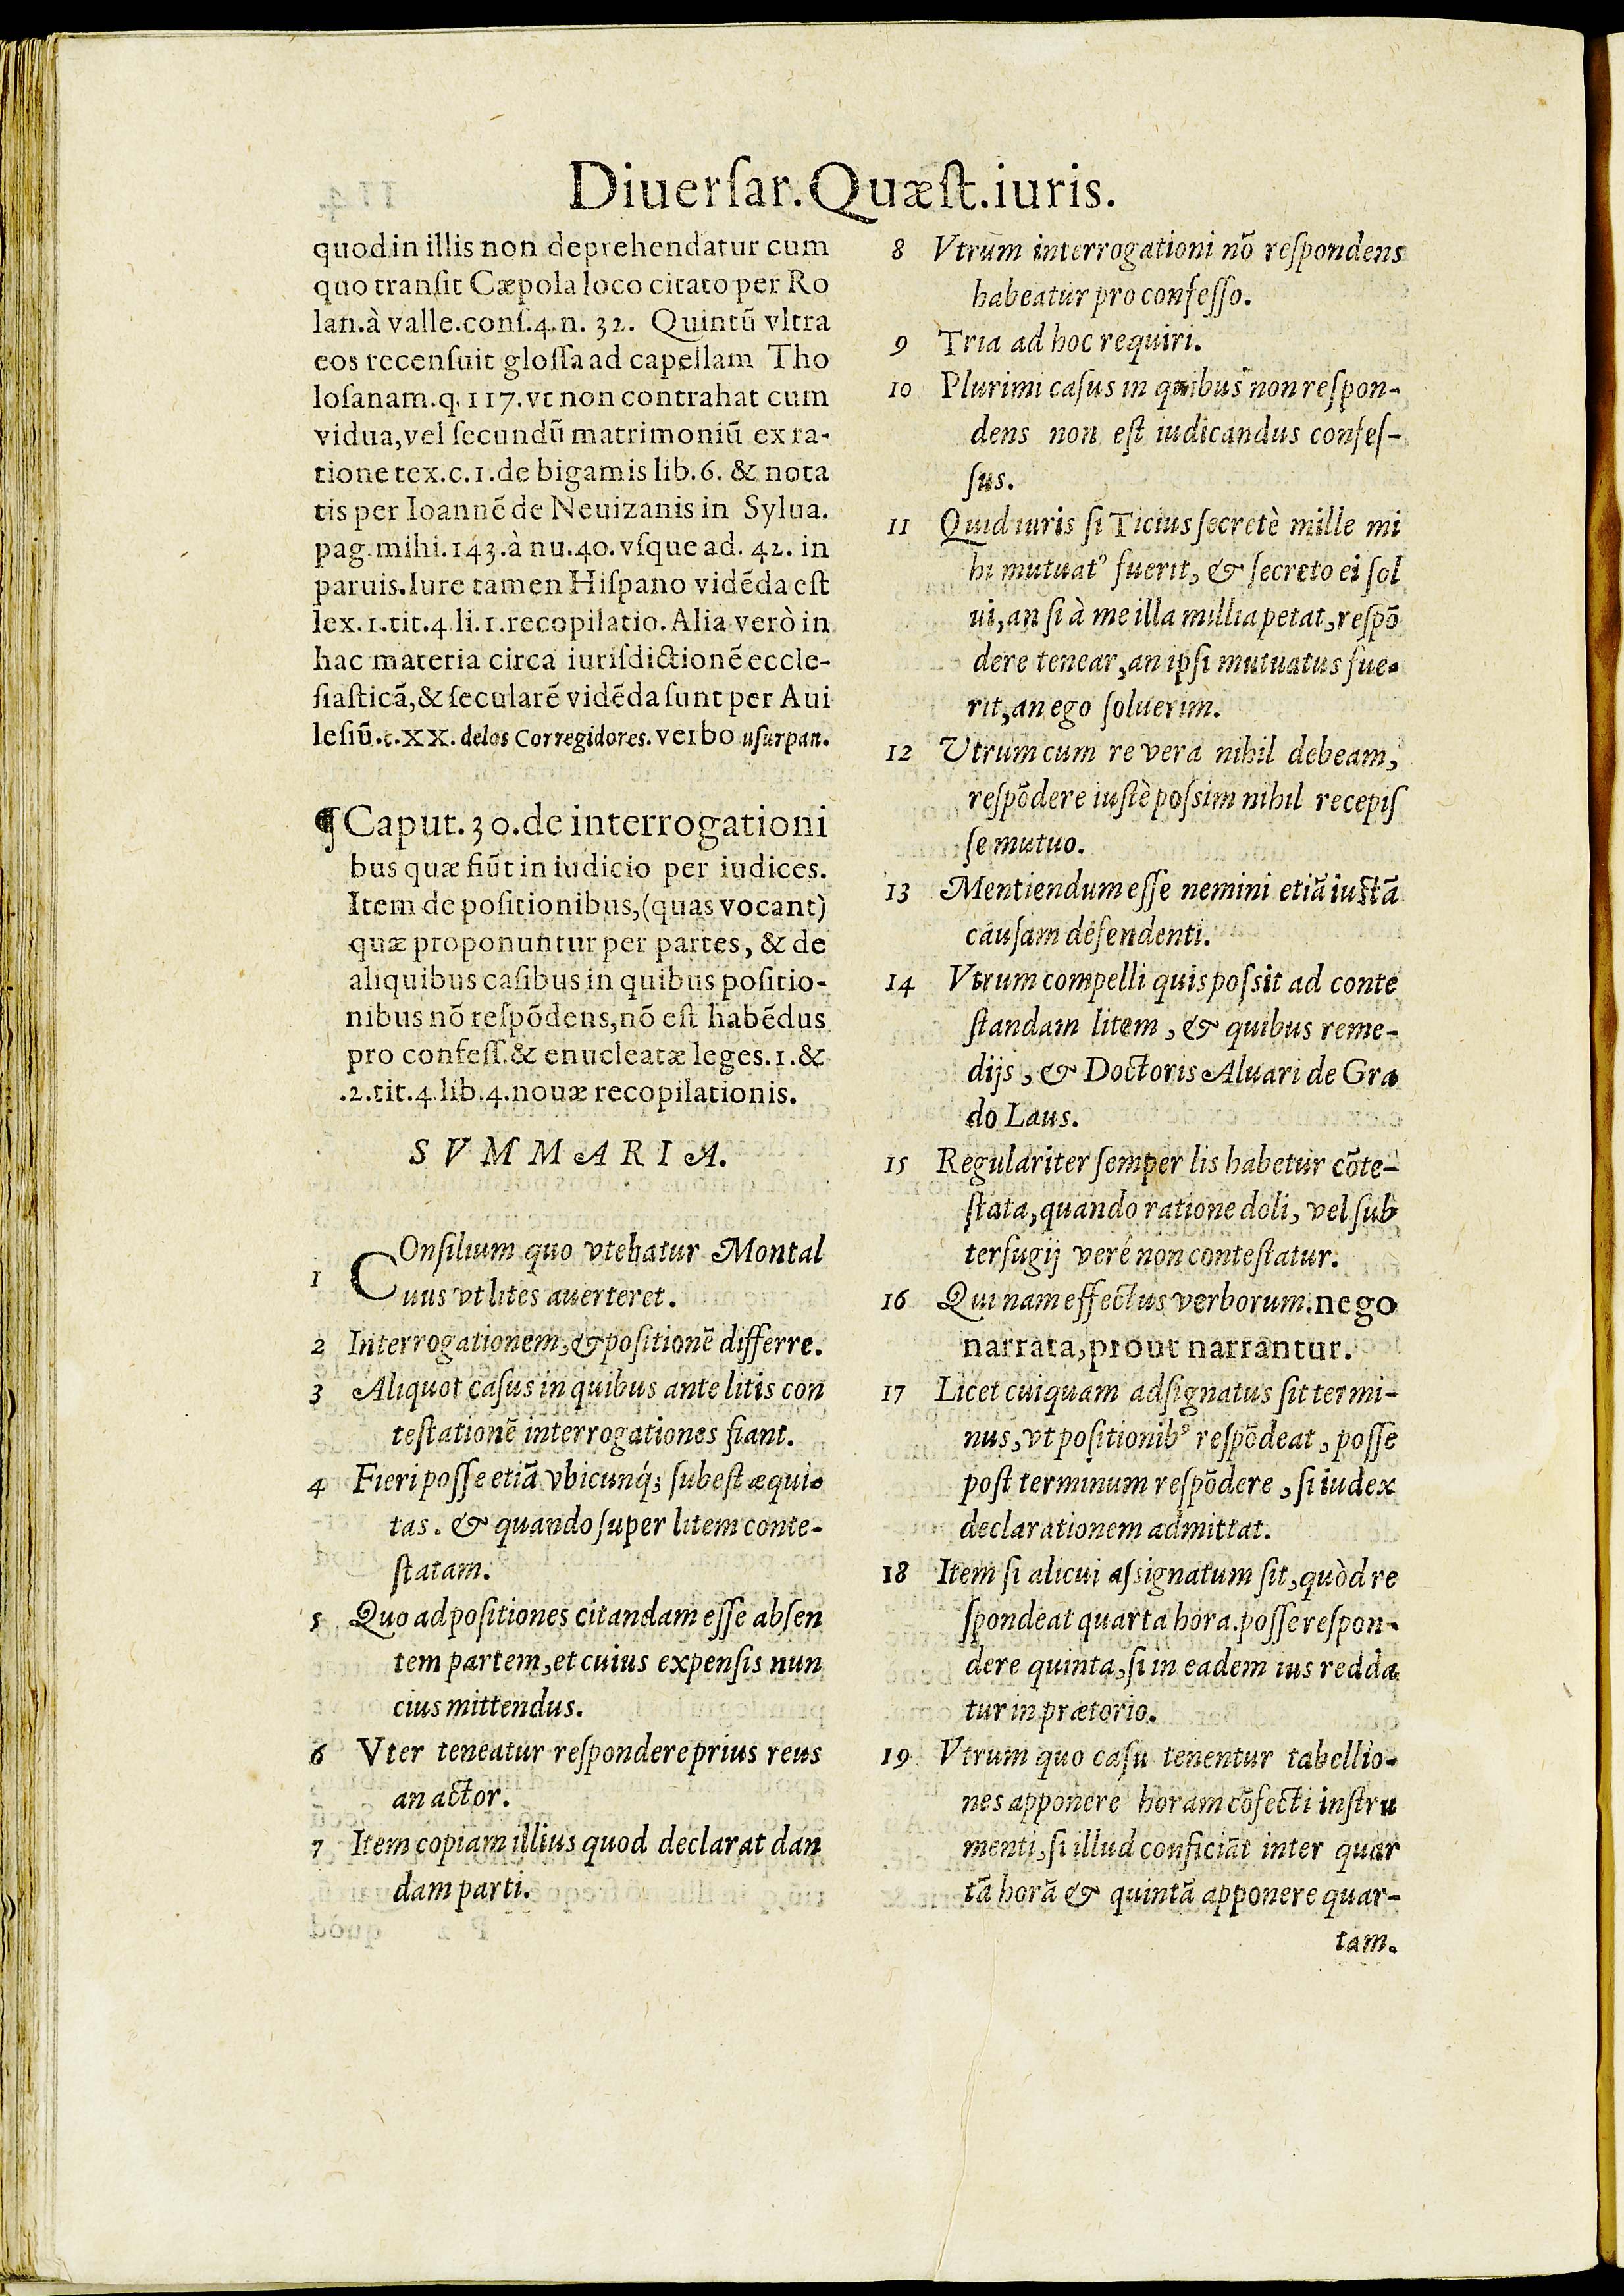 Diuerſar.Quæſt.iuris.
quod in illis non deprehendatur cum
quo tranſit Cæpola loco citato per Ro
lan.à valle.conſ.4.n. 32. Quintũ vltra
eos recenſuit gloſſa ad capellam Tho
loſanam.q.117.vt non contrahat cum
vidua,vel ſecundũ matrimoniũ ex ra-
tione tex.c.1.de bigamis lib.6. & nota
tis per Ioannẽ de Neuizanis in Sylua.
pag.mihi.143.à nu.40.vſque ad. 42. in
paruis.Iure tamen Hiſpano vidẽda eſt
lex.1.tit.4.li.1.recopilatio.Alia verò in
hac materia circa iuriſdictionẽ eccle-
ſiaſticã,& ſecularẽ vidẽda ſunt per Aui
leſiũ.c.XX. delos Corregidores. verbo uſurpan.
¶ Caput.30.de interrogationi
bus quæ fiũt in iudicio per iudices.
Item de poſitionibus,(quas vocant)
quæ proponuntur per partes, & de
aliquibus caſibus in quibus poſitio-
nibus nõ reſpõdens,nõ eſt habẽdus
pro confeſſ.& enucleatæ leges.1.&
.2.tit.4.lib.4.nouæ recopilationis.
SVMMARIA.
1 COnſilium quo vtebatur Montal
uus vt lites auerteret.
2 Interrogationem,& poſitionẽ differre.
3 Aliquot caſus in quibus ante litis con
teſtationẽ interrogationes fiant.
4 Fieri poſſe etiã vbicunq́; ſubeſt æqui-
tas. & quando ſuper litem conte-
ſtatam.
5 Quo ad poſitiones citandam eſſe abſen
tem partem,et cuius expenſis nun
cius mittendus.
6 Vter teneatur reſpondere prius reus
an actor.
7 Item copiam illius quod declarat dan
dam parti.
8 Vtrum interrogationi nõ reſpondens
habeatur pro confeſſo.
9 Tria ad hoc requiri.
10 Plurimi caſus in quibus non reſpon-
dens non eſt iudicandus confeſ-
ſus.
11 Quid iuris ſi Ticius ſecretè mille mi
hi mutuatꝰ fuerit, & ſecreto ei ſol
ui,an ſi à me illa millia petat,reſpõ
dere tenear,an ipſi mutuatus fue-
rit,an ego ſoluerim.
12 Utrum cum re vera nihil debeam,
reſpõdere iuſtè poſsim nihil recepiſ
ſe mutuo.
13 Mentiendum eſſe nemini etiã iuſtã
cauſam defendenti.
14 Vtrum compelli quis poſsit ad conte
ſtandam litem, & quibus reme-
dijs, & Doctoris Aluari de Gra
do Laus.
15 Regulariter ſemper lis habetur cõte-
ſtata,quando ratione doli, vel ſub
terfugij verè non conteſtatur.
16 Qui nam effectus verborum.nego
narrata,prout narrantur.
17 Licet cuiquam adſignatus ſit termi-
nus,vt poſitionibꝰ reſpõdeat, poſſe
poſt terminum reſpõdere, ſi iudex
declarationem admittat.
18 Item ſi alicui aſsignatum ſit,quòd re
ſpondeat quarta hora.poſſe reſpon-
dere quinta,ſi in eadem ius redda
tur in prætorio.
19 Vtrum quo caſu tenentur tabellio-
nes apponere horam cõfecti inſtru
menti,ſi illud conficiãt inter quar
tã horã & quintã apponere quar-
tam.